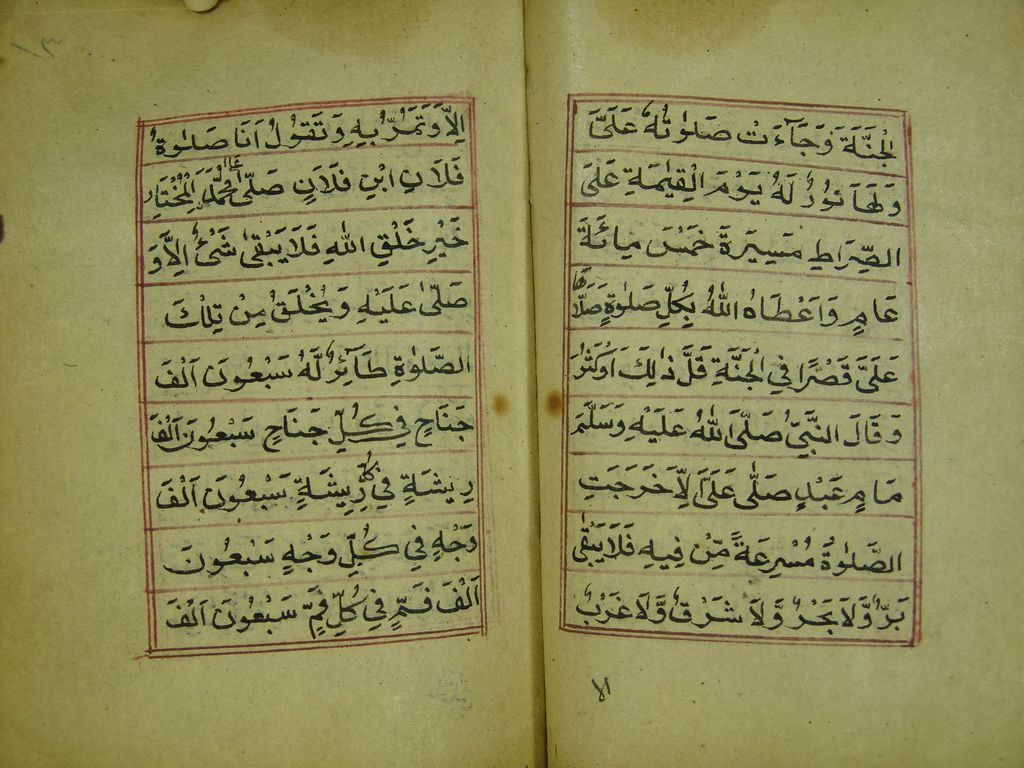 الْجَنَّةَ وَجَآءَتْ صَلٰوتُهُ عَلَيَّ
وَلَهَا نُوْرٌ لَهُ يَوْمَ الْقِيٰمَةِ عَلَى
الصِّرَاطِ مَسِيْرَةَ خَمْسَ مِائَةَ
عَامٍ وَاَعْطَاهُ اللّٰهُ بِكُلِّ صَلٰوةٍ صَلَّاهَا
عَلَيَّ قَصْرًا فِي الْجَنَّةِ قَلَّ ذٰلِكَ اَوْكَثُرَ
وَقَالَ النَّبِيُّ صَلَّى اللّٰهُ عَلَيْهِ وَسَلَّمَ
مَا مِنْ عَبْدٍ صَلّٰى عَلَيَّ اِلَّا خَرَجَتِ
الصَّلٰوةُ مُسْرِعَةً مِّنْ فِيْهِ فَلَا يَبْقٰى
بَرٌّ وَّلَا بَحْرٌ وَّلَا شَرْقٌ وَّلَا غَرْبٌ
الا
١٣
اِلَّا وَتَمُرُّ بِهٖ وَتَقُوْلُ اَنَا صَلٰوةُ
فُلَانِ ابْنِ فُلَانٍ صَلّٰى عَلٰى مُحَمَّدٍ الْمُخْتَارِ
خَيْرِ خَلْقِ اللّٰهِ فَلَا يَبْقٰى شَيْءٌ اِلَّا وَ
صَلّٰى عَلَيْهِ وَيُخْلَقُ مِنْ تِلْكَ
الصَّلٰوةِ طَآئِرٌ لَّهُ سَبْعُوْنَ اَلْفَ
جَنَاحٍ فِيْ كُلِّ جَنَاحٍ سَبْعُوْنَ اَلْفَ
رِيْشَةٍ فِيْ كُلِّ رِيْشَةٍ سَبْعُوْنَ اَلْفَ
وَجْهٍ فِيْ كُلِّ وَجْهٍ سَبْعُوْنَ
اَلْفَ فَمٍّ فِيْ كُلِّ فَمٍّ سَبْعُوْنَ اَلْفَ